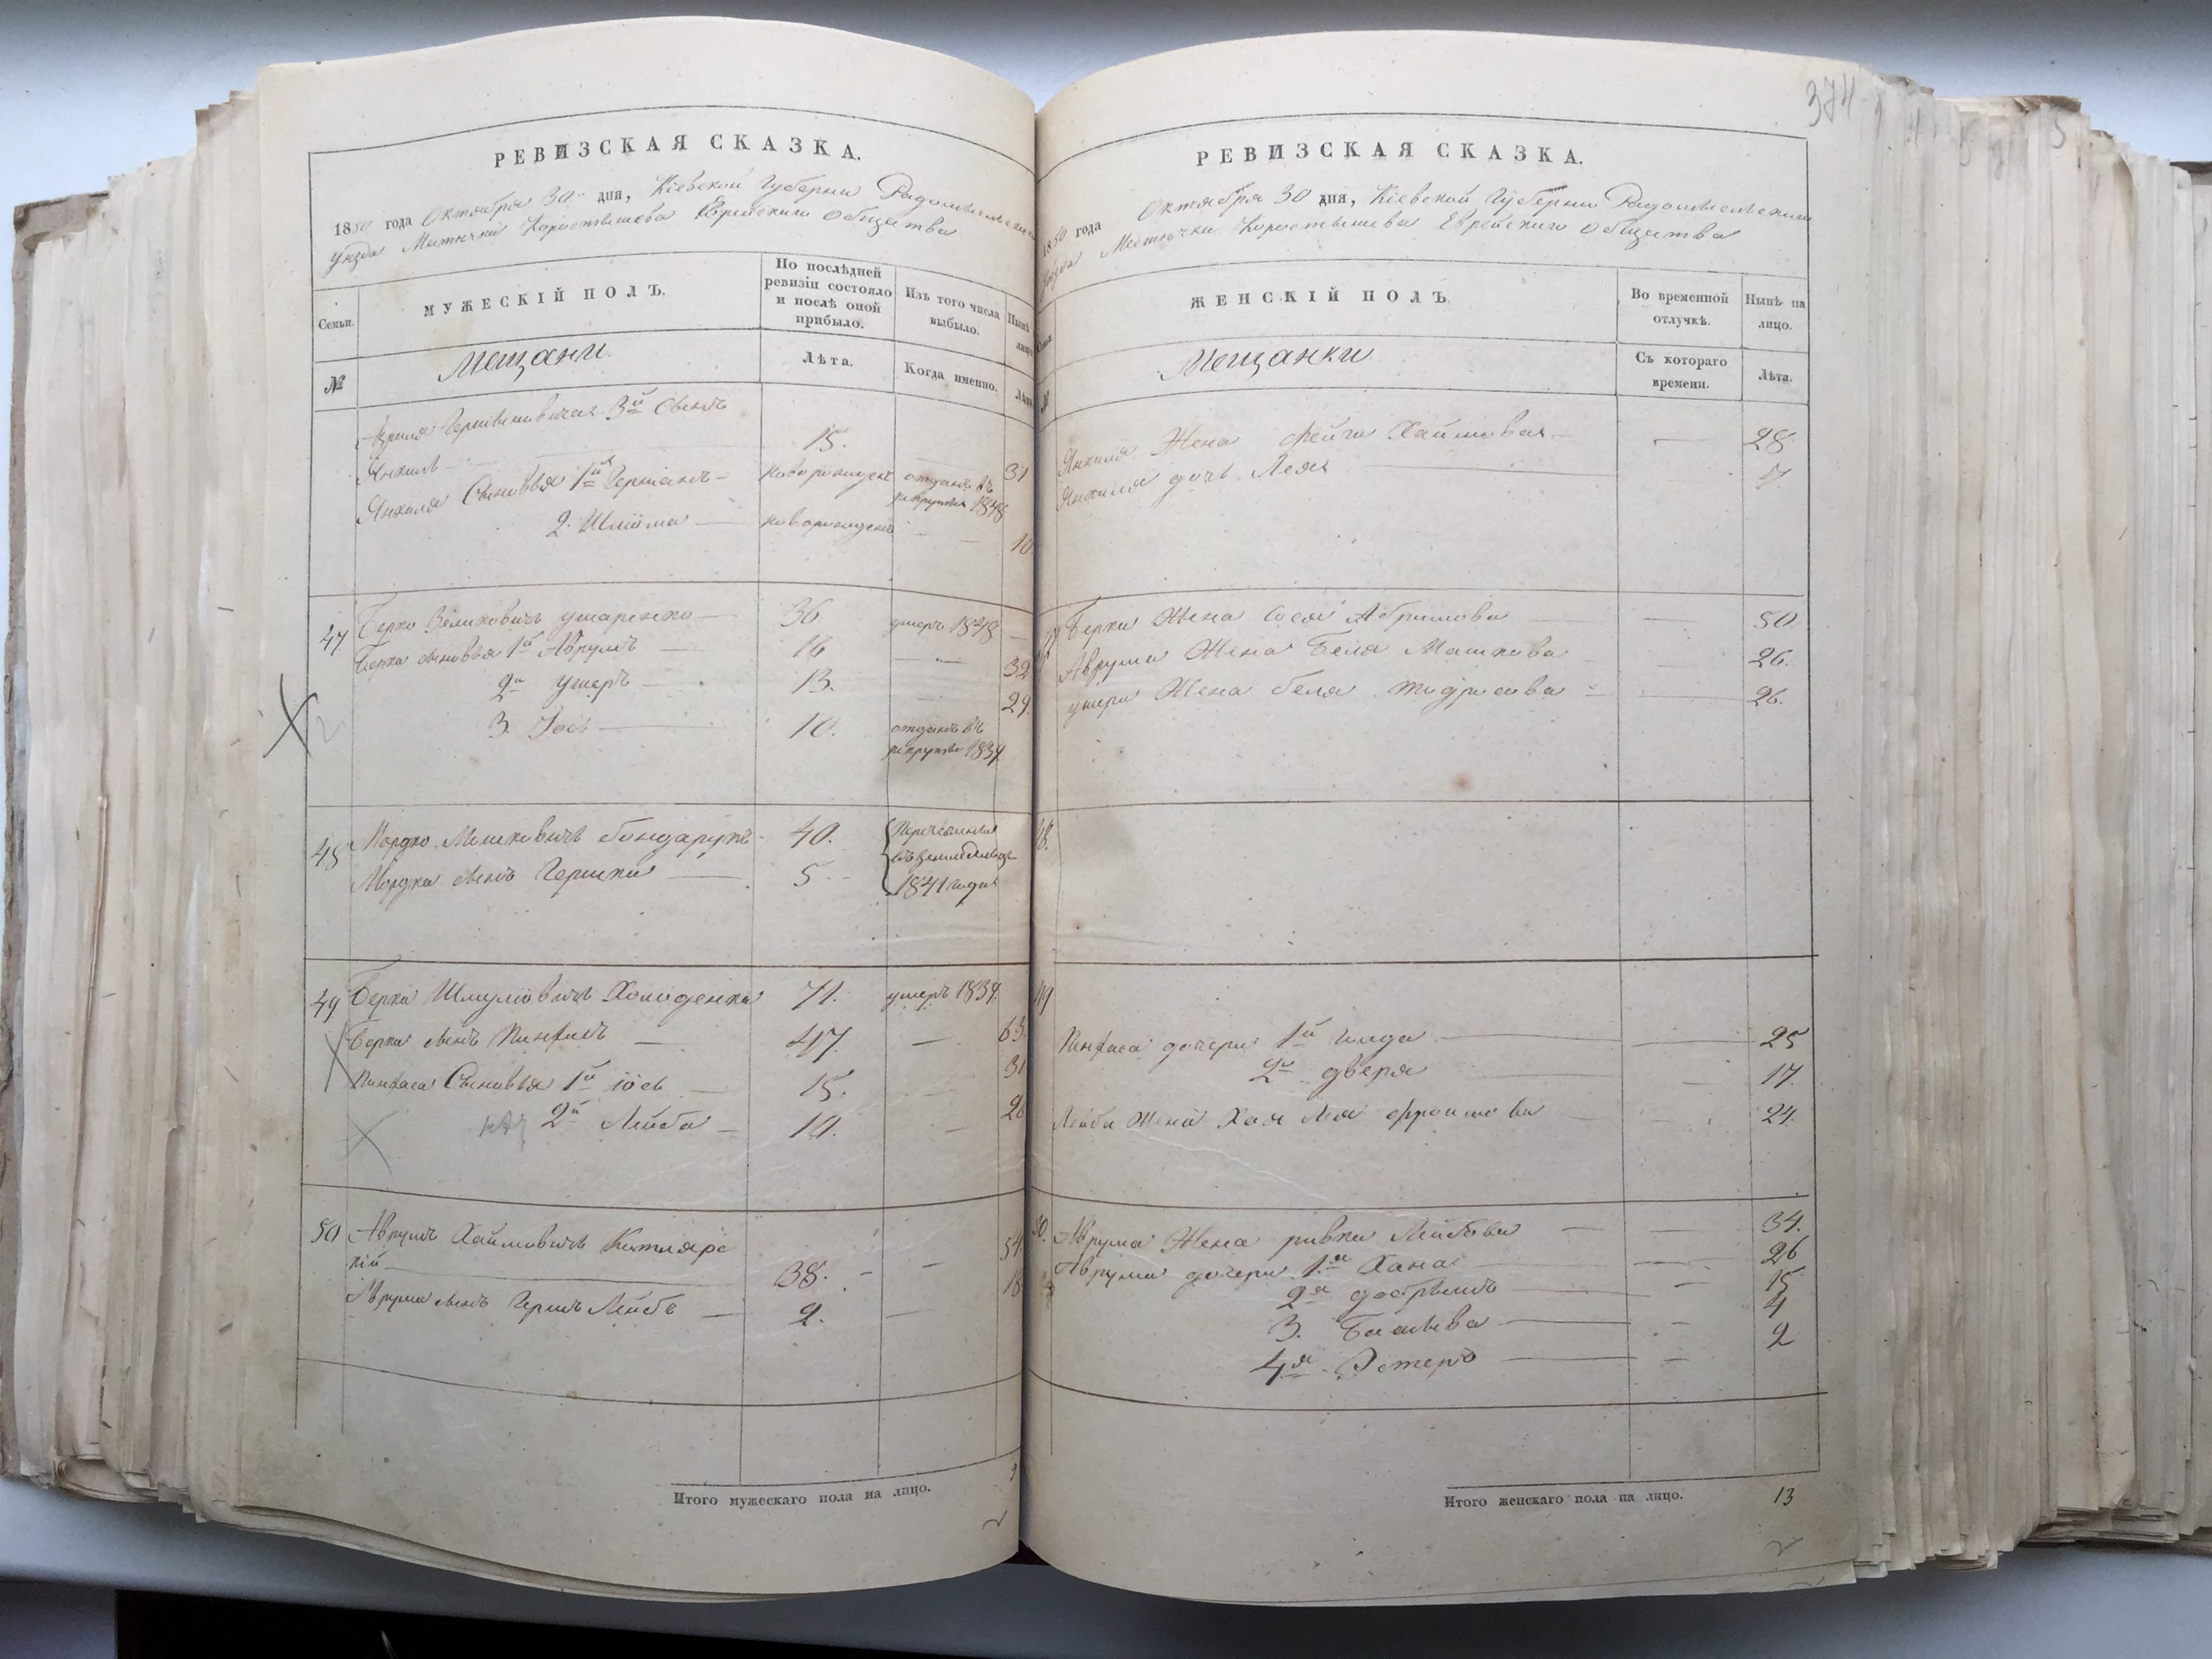 РЕВИЗСКАЯ СКАЗКА.
1850 года Октября 30 дня, Кіевской Губерніи Радомысльскаго
уѣзда Мѣстечка Коростышева Еврейскаго общества
Семьи.
МУЖЕСКІЙ ПОЛЪ.
По послѣдней ревизіи состояло и послѣ оной прибыло.
Изъ того числа выбыло.
Нынѣ лицо
№
Мещани
Лѣта.
Когда именно.
Лѣта
Гершковича 3й сынъ
Янкель 15. 31
Янкеля Сыновья 1й Гершанъ новорожденъ отданъ въ рекруты 1848
2. Шлёма новорожденъ 10
47 Берко Зеликовичъ ушаренко 36 умеръ 1848
Берка сыновья 1й Аврумъ 16 32
2й Ушеръ 13. 29.
3. Іось 10. отданъ въ рекруты 1837
48 Мордко Мошковичъ бондарукъ 40. Перечислены въ земледельцы 1841 года
Мордка сынъ Гершко 5
49 Берко Шмулiовичъ Холоденко 71. умеръ 1839.
Берка сынъ Пинхасъ 47 63.
Пинхаса Сыновья 1й іось 15. 31
2й Лейба 10. 26
50 Аврумъ Хаймовичъ Котлярс
кій 38. 54
Аврума сынъ Герш Лейбъ 2. 18
Итого мужескаго пола на лицо. 9
374
РЕВИЗСКАЯ СКАЗКА.
1850 года Октября 30 дня, Кіевской Губерніи Радомысльскаго
уѣзда Мѣстечка Коростышева Еврейскаго общества
ЖЕНСКІЙ ПОЛЪ
Во временной отлучкѣ.
Нынѣ на лицо.
№
Мещанки
Съ котораго времени.
Лѣта.
Янкеля Жена Фейга Хаймовая 28
Янкеля дочь Лея 7
Берки Жена Сося Абрамова 50.
Аврума Жена Бейла Мошкова 26.
ушера Жена бела 26.
48.
49
Пинхаса дочери 1я голда 25
2я двера 17.
Лейбы Жена Хая Лея 24.
50. Аврума Жена ривка Лейбова 34.
Аврума дочери 1я Хана 26
2я добрышъ 15
3. Басшева 4
4я Эстеръ 2
Итого женскаго пола на лицо. 13